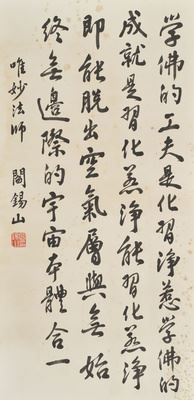 學佛的工夫是化習淨慧學佛的
成就是習化羔淨能習化羔淨
即能脫出空氣層與無始
終無邊際的宇宙本體合一
唯妙法師
閻錫山